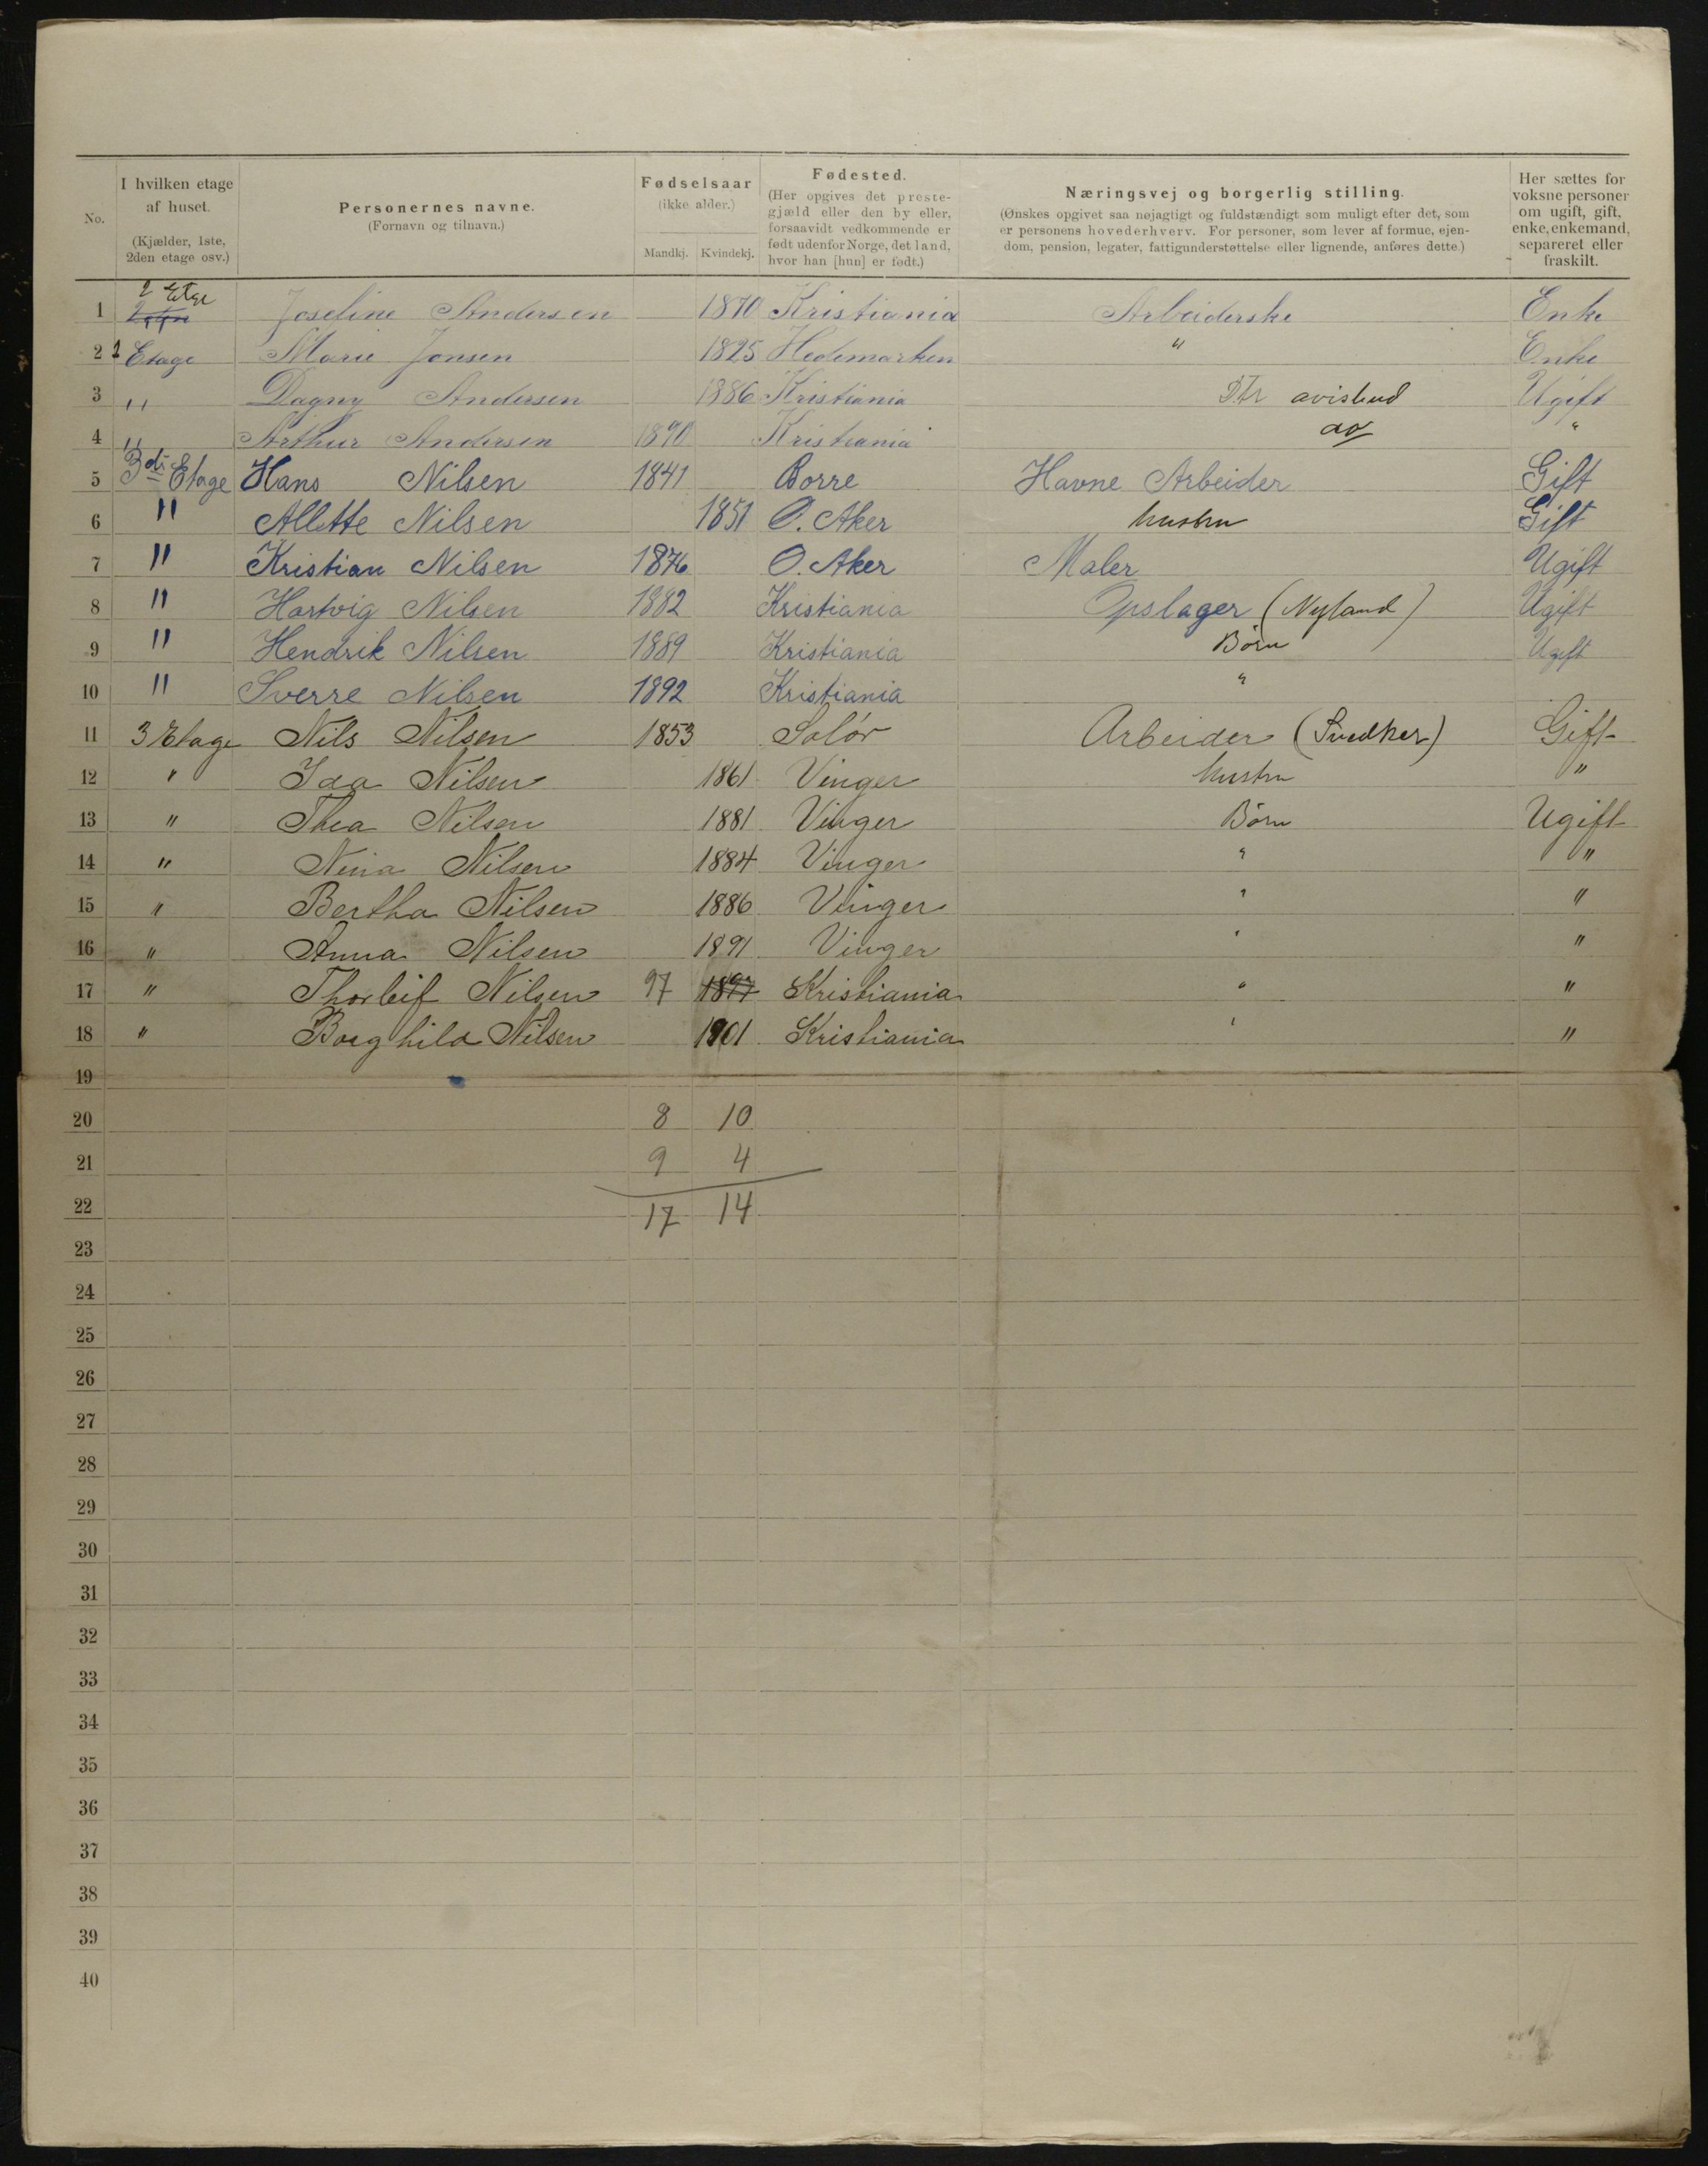 No.
I hvilken etage af huset. (Kjælder, 1ste, 2den etage osv.)
Personernes navne. (Fornavn og tilnavn.)
Fødselsaar (ikke alder.)
Mandkj. Kvindekj.
Fødested. (Her opgives det prestegjæld eller den by eller, forsaavidt vedkommende er født udenfor Norge, det land, hvor han [hun] er født.)
Næringsvej og borgerlig stilling. (Ønskes opgivet saa nøjagtigt og fuldstændigt som muligt efter det, som er personens hovederhverv. For personer, som lever af formue, ejendom, pension, legater, fattigunderstøttelse eller lignende, anføres dette.)
Her sættes for voksne personer om ugift, gift, enke, enkemand, separeret eller fraskilt.
1 2 Etge Joseline Andersen 1870 Kristiania Arbeiderske Enke
2 2 Etage Marie Jonsen 1825 Hedemarken " Enke
3 " Dagny Andersen 1886 Kristiania avisbud Ugift
4 " Arthur Andersen 1890 Kristiania do "
5 3di Etage Hans Nilsen 1841 Borre Havne Arbeider Gift
6 " Allette Nilsen 1851 O. Aker hustru Gift
7 " Kristian Nilsen 1876 O. Aker Maler Ugift
8 " Hartvig Nilsen 1882 Kristiania Opslager (Nyland) Ugift
9 " Hendrik Nilsen 1889 Kristiania Børn Ugift
10 " Sverre Nilsen 1892 Kristiania "
11 3 Etage Nils Nilsen 1853 Solør Arbeider (Snedker) Gift
12 " Ida Nilsen 1861 Vinger hustru "
13 " Thea Nilsen 1881 Vinger Børn Ugift
14 " Nina Nilsen 1884 Vinger " "
15 " Bertha Nilsen 1886 Vinger " "
16 " Anna Nilsen 1891 Vinger " "
17 " Thorleif Nilsen 97 1897 Kristiania " "
18 " Borghild Nilsen 1901 Kristiania " "
19
20 8 10
21 9 4
22 17 14
23
24
25
26
27
28
29
30
31
32
33
34
35
36
37
38
39
40